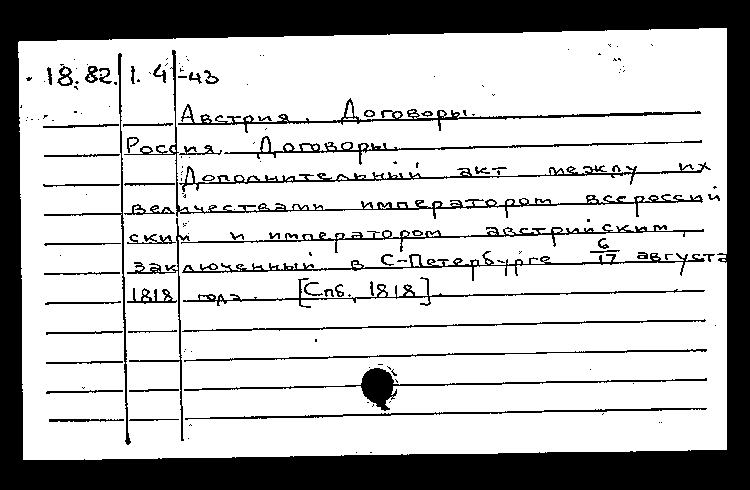 18.82.1.4-43
Австрия. Договоры.
Россия. Договоры.
Дополнительный акт между их
величествами императором всероссий
ским и императором австрийским,
заключенный в С-Петербурге 6/17 августа
1818 года. [Спб., 1818].